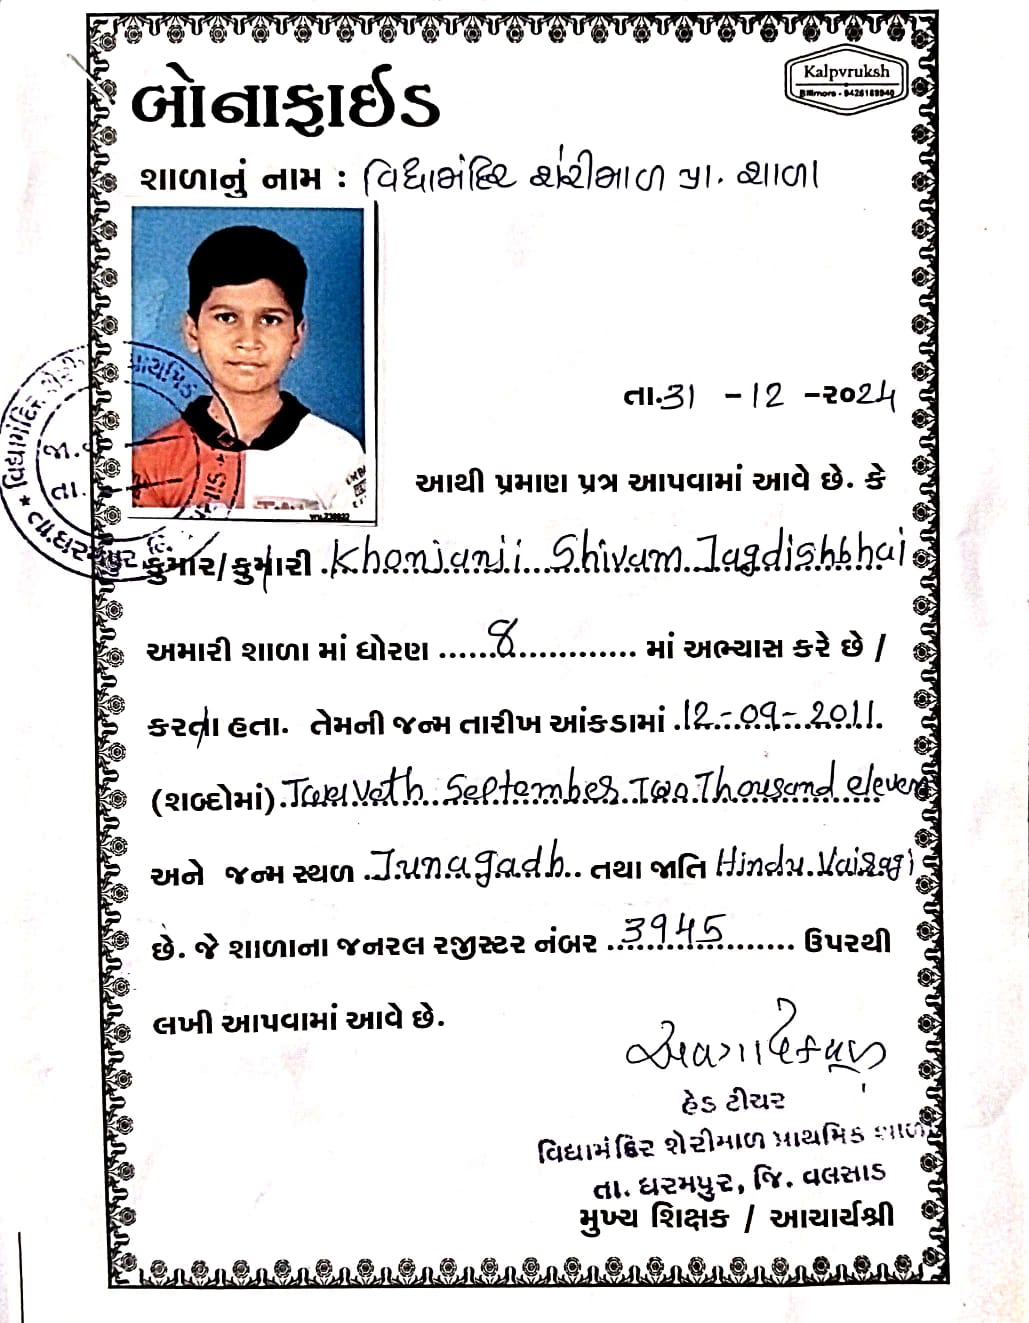 Kalpvruksh
Billimora - 9426189940
બોનાફાઈડ
શાળાનું નામ : વિદ્યામંદિર શેરીમાળ પ્રા. શાળા
તા.31 - 12 - ૨૦24
આથી પ્રમાણ પત્ર આપવામાં આવે છે. કે
કુમાર/કુમારી Khonjanji Shivam Jagdishbhai
અમારી શાળા માં ધોરણ ......8............ માં અભ્યાસ કરે છે /
કરતા હતા. તેમની જન્મ તારીખ આંકડામાં .12-09-2011.
(શબ્દોમાં). Twelveth September Two Thousand eleven
અને જન્મ સ્થળ .Junagadh.. તથા જાતિ Hindu.Vairagi
છે. જે શાળાના જનરલ રજીસ્ટર નંબર ..3945........ ઉપરથી
લખી આપવામાં આવે છે.
હેડ ટીચર
વિદ્યામંદિર શેરીમાળ પ્રાથમિક શાળા
તા. ધરમપુર, જિ. વલસાડ
મુખ્ય શિક્ષક / આચાર્યશ્રી